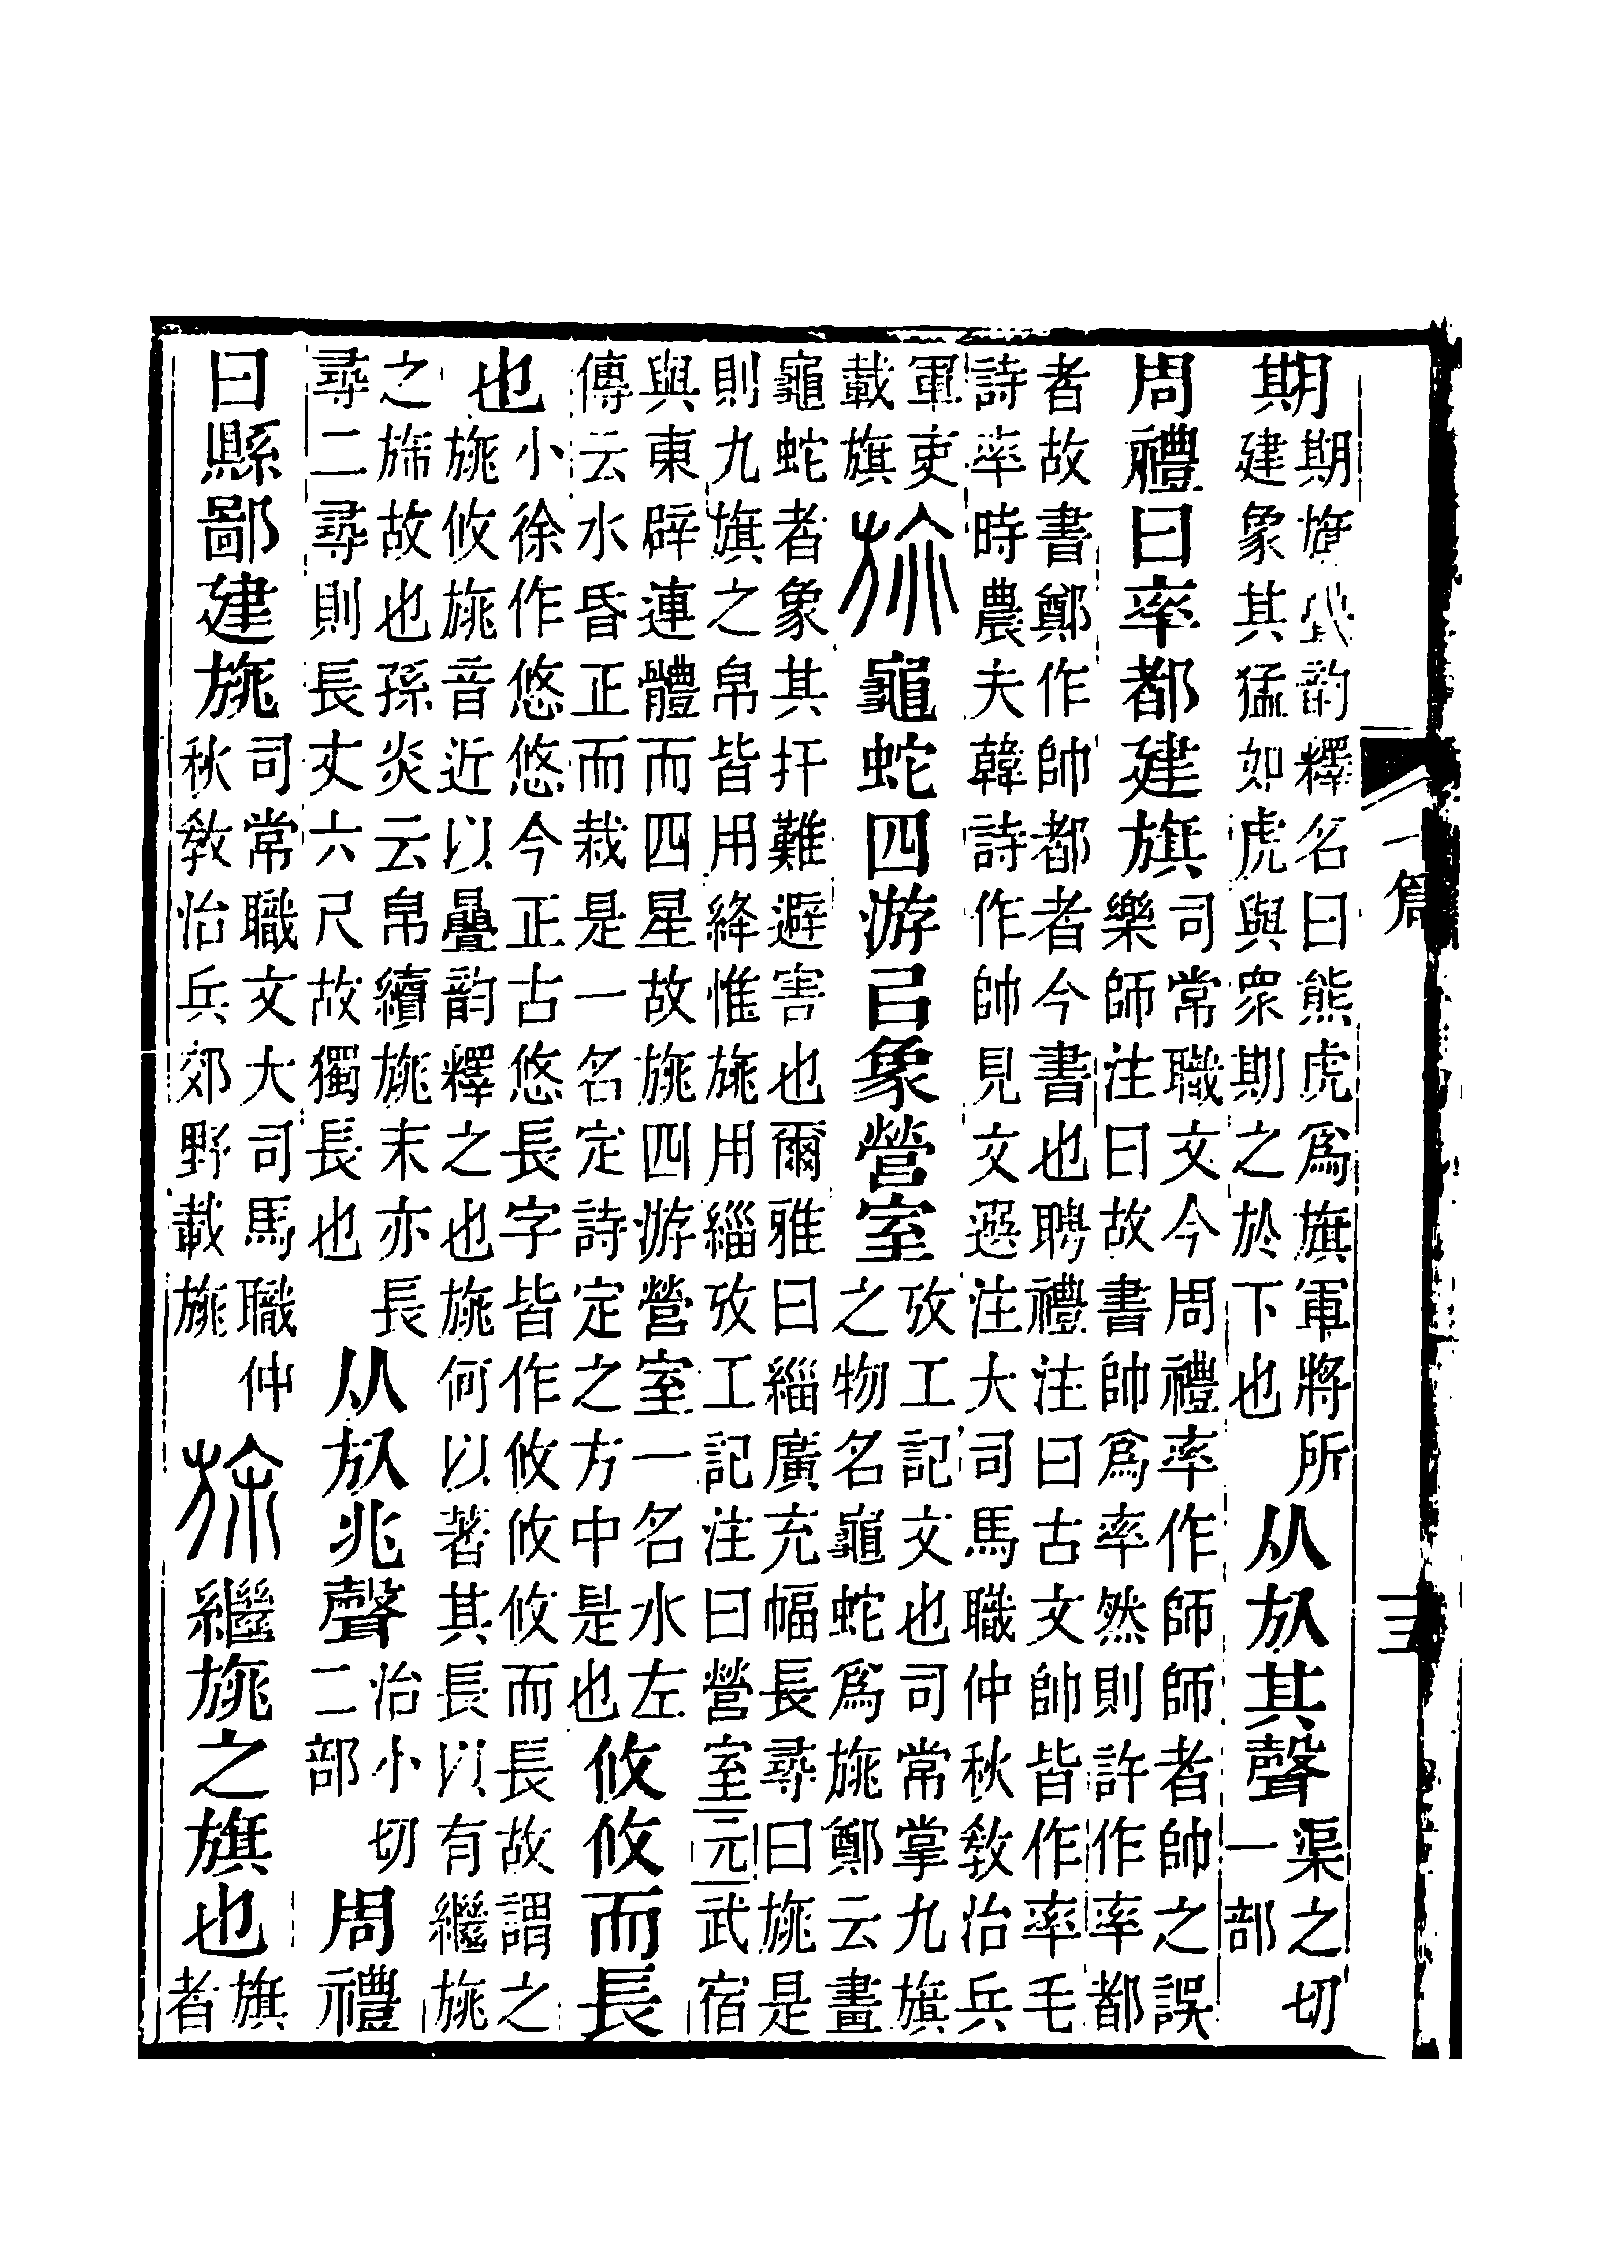 期
期旗疊韵釋名曰熊虎爲旗軍將所
建象其猛如虎與衆期之於下也
从㫃其聲
渠之切
一部
周禮曰率都建旗
司常職文今周禮率作師師者帥之誤
樂師注曰故書帥爲率然則許作率都
者故書鄭作帥都者今書也聘禮注曰古文帥皆作率毛
詩率時農夫韓詩作帥見文選注大司馬職仲秋敎治兵
軍吏
載旗
旐龜蛇四游㠯象營室
攷工記文也司常掌九旗
之物名龜蛇爲旐鄭云畫
龜蛇者象其扞難避害也爾雅曰緇廣充幅長尋曰旐是
則九旗之帛皆用絳惟旐用緇攷工記注曰營室元武宿
與東辟連體而四星故旐四游營室一名水左
傳云水昏正而栽是一名定詩定之方中是也
攸攸而長
也
小徐作悠悠今正古悠長字皆作攸攸攸而長故謂之
旐攸旐音近以疊韵釋之也旐何以著其長以有繼旐
之旆故也孫炎云帛續旐末亦長
尋二尋則長丈六尺故獨長也
从㫃兆聲
治小切
二部
周禮
曰縣鄙建旐
司常職文大司馬職仲
秋敎治兵郊野載旐
旆繼旐之旗也
旗
者